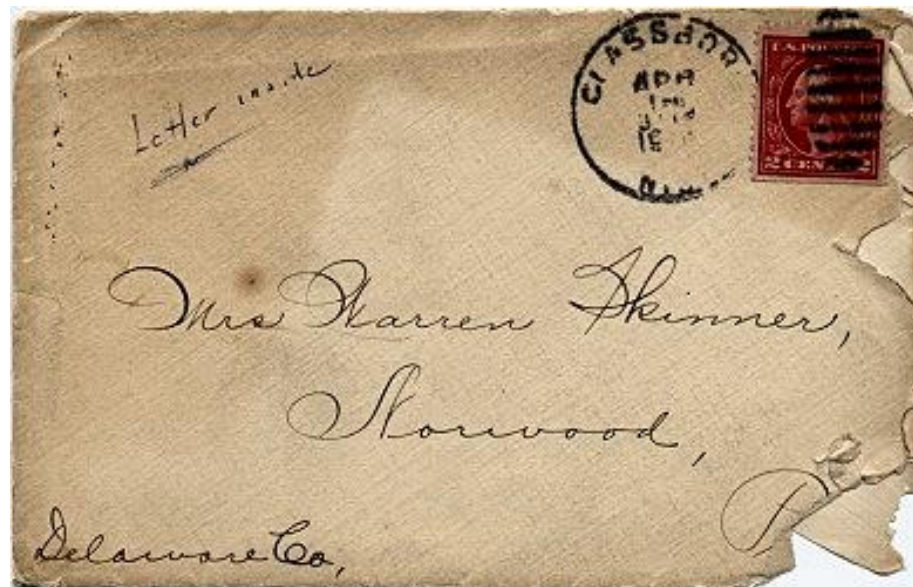 Letter inside
GLASSBOR
APR
U.S. POSTAGE
2 CENTS 2
Mrs Warren Skinner,
Norwood,
P
Delaware Co,